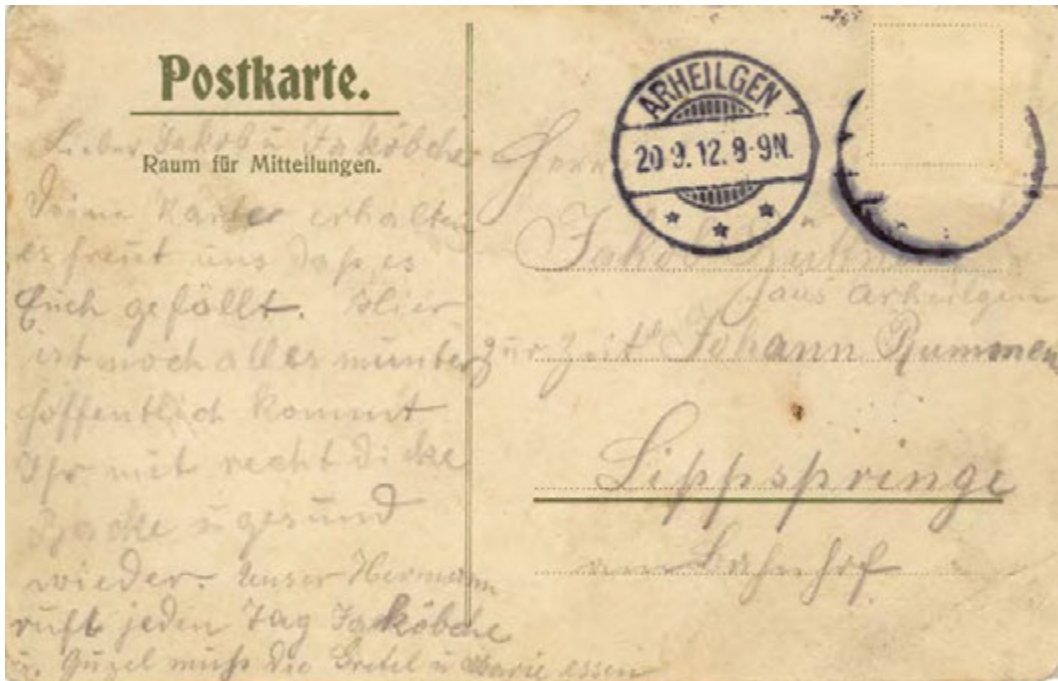 Postkarte.
Raum für Mitteilungen.
Lieber Jakob u Jaköbche
Deine Karte erhalten
es freut uns daß es
Euch gefällt. Hier
ist noch alles munter
hoffentlich kommt
Ihr mit recht dicke
Backe u gesund
wieder. Unser Hermann
ruft jeden Tag Jaköbche
u. Guzel muß die Gretel u Marie essen
ARHEILGEN
20 9. 12. 8-9N.
Herrn
Jakob
aus Arheilgen
zur Zeit Johann
Lippspringe
am Bahnhof